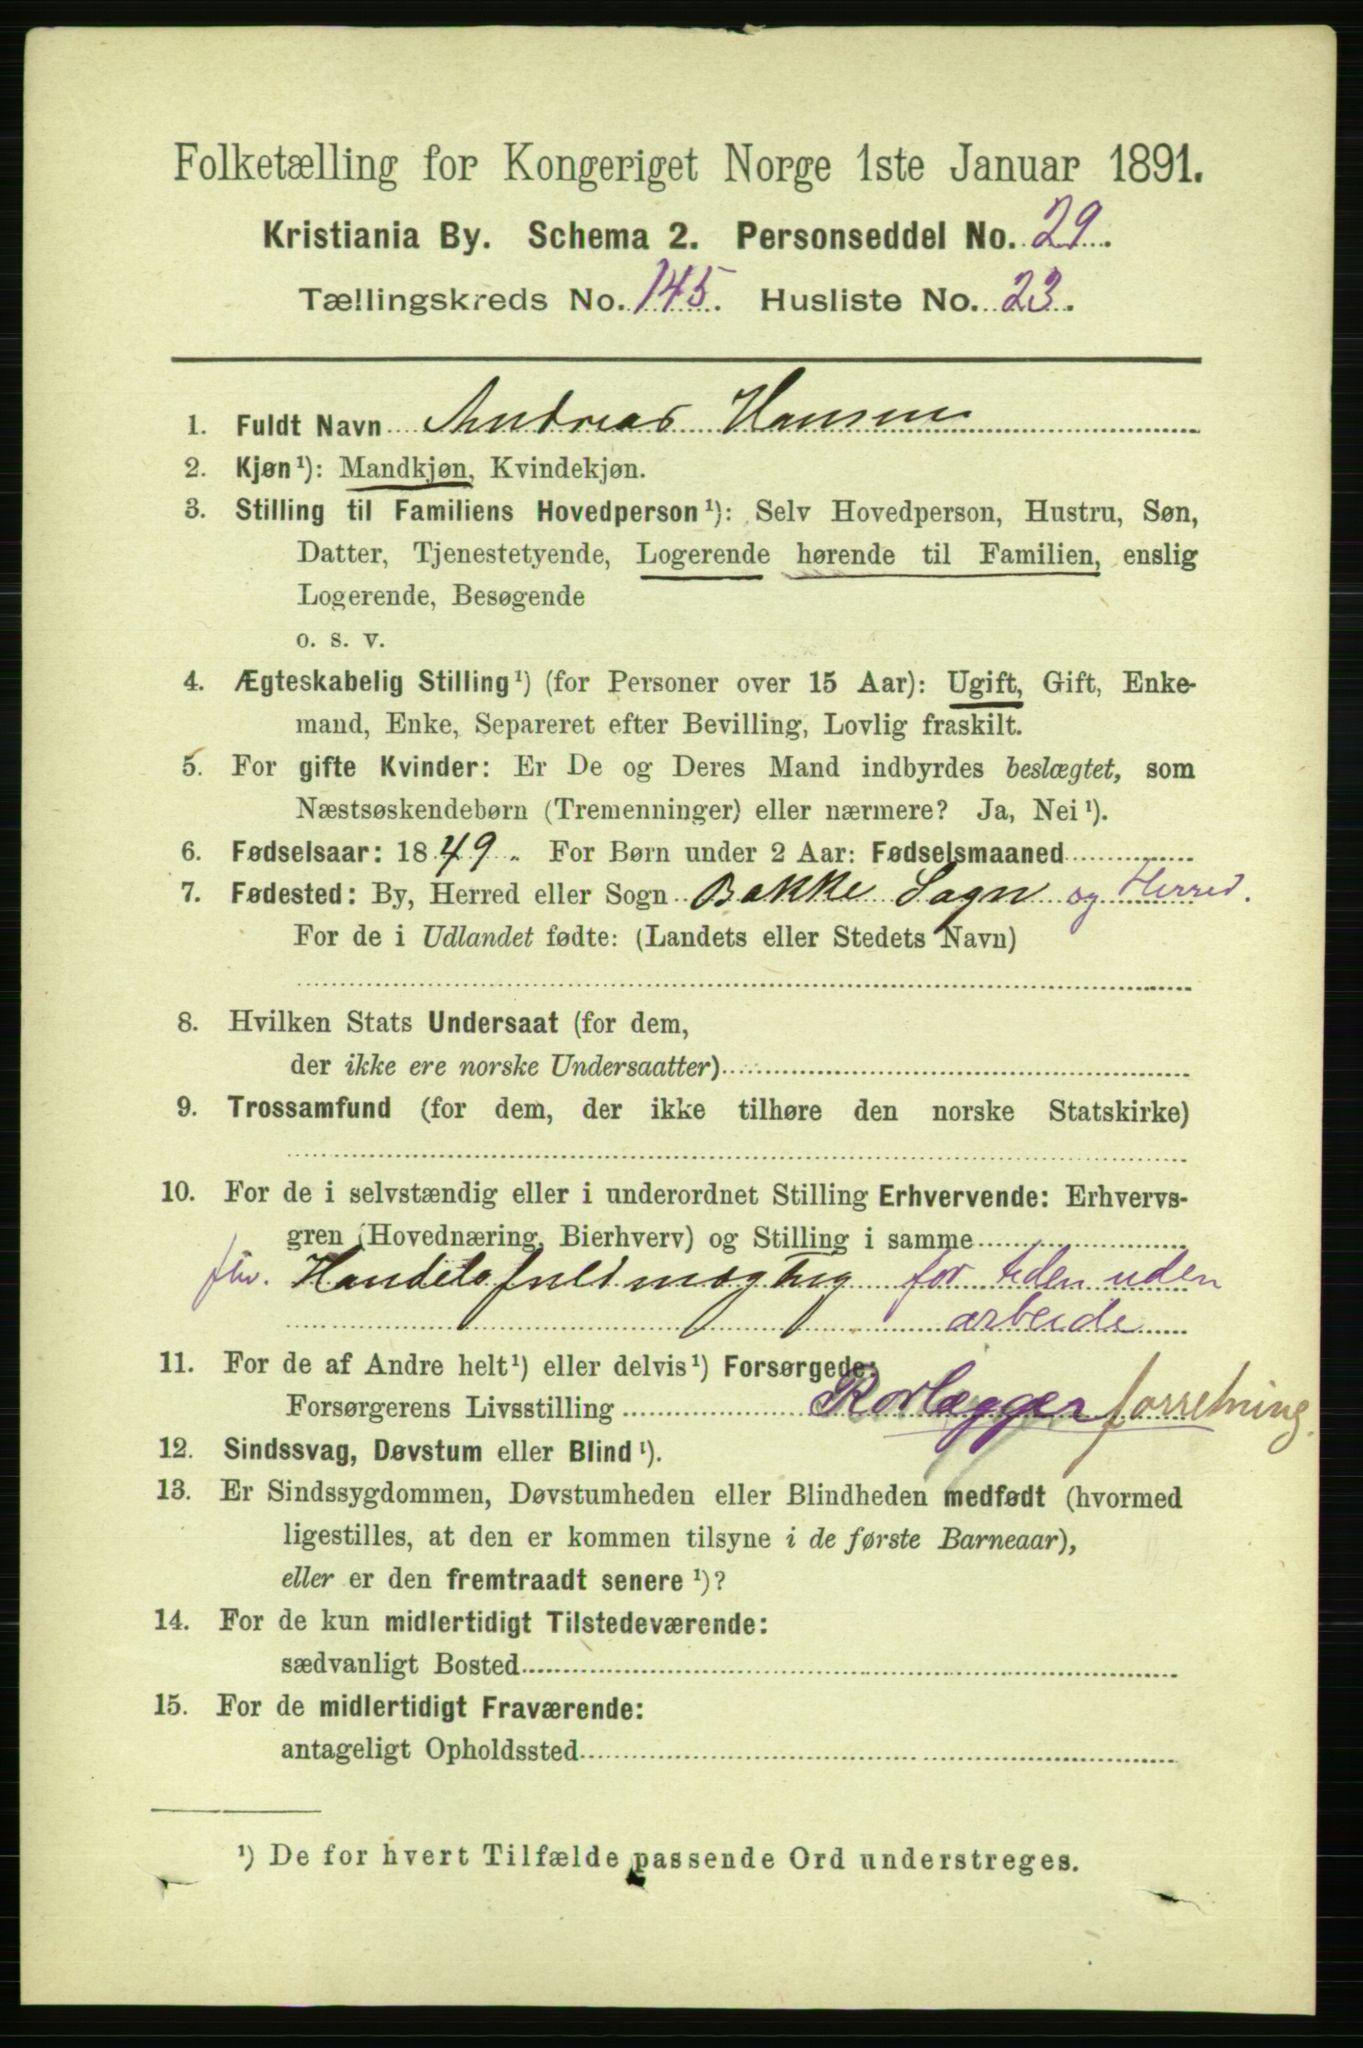 Folketælling for Kongeriget Norge 1ste Januar 1891.
Kristiania By. Schema 2. Personseddel No. 29.
Tællingskreds No. 145. Husliste No. 23.
1. Fuldt Navn Andreas Hansen
2. Kjøn¹): Mandkjøn, Kvindekjøn.
3. Stilling til Familiens Hovedperson¹): Selv Hovedperson, Hustru, Søn,
Datter, Tjenestetyende, Logerende hørende til Familien, enslig
Logerende, Besøgende
o. s. v.
4. Ægteskabelig Stilling¹) (for Personer over 15 Aar): Ugift, Gift, Enke-
mand, Enke, Separeret efter Bevilling, Lovlig fraskilt.
5. For gifte Kvinder: Er De og Deres Mand indbyrdes beslægtet, som
Næstsøskendebørn (Tremenninger) eller nærmere? Ja, Nei¹).
6. Fødselsaar: 1849. For Børn under 2 Aar: Fødselsmaaned
7. Fødested: By, Herred eller Sogn Bakke Sogn og Herred.
For de i Udlandet fødte: (Landets eller Stedets Navn)
8. Hvilken Stats Undersaat (for dem,
der ikke ere norske Undersaatter)
9. Trossamfund (for dem, der ikke tilhøre den norske Statskirke)
10. For de i selvstændig eller i underordnet Stilling Erhvervende: Erhvervs-
gren (Hovednæring, Bierhverv) og Stilling i samme
Handelsfuldmægtig for tiden uden
arbeide
11. For de af Andre helt¹) eller delvis¹) Forsørgede:
Forsørgerens Livsstilling Rorlægger forretning.
12. Sindssvag, Døvstum eller Blind¹).
13. Er Sindssygdommen, Døvstumheden eller Blindheden medfødt (hvormed
ligestilles, at den er kommen tilsyne i de første Barneaar),
eller er den fremtraadt senere¹)?
14. For de kun midlertidigt Tilstedeværende:
sædvanligt Bosted
15. For de midlertidigt Fraværende:
antageligt Opholdssted
¹) De for hvert Tilfælde passende Ord understreges.